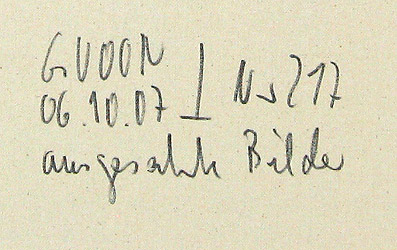 GVOON
06.10.07 Nr 217
ausgesuchte Bilder